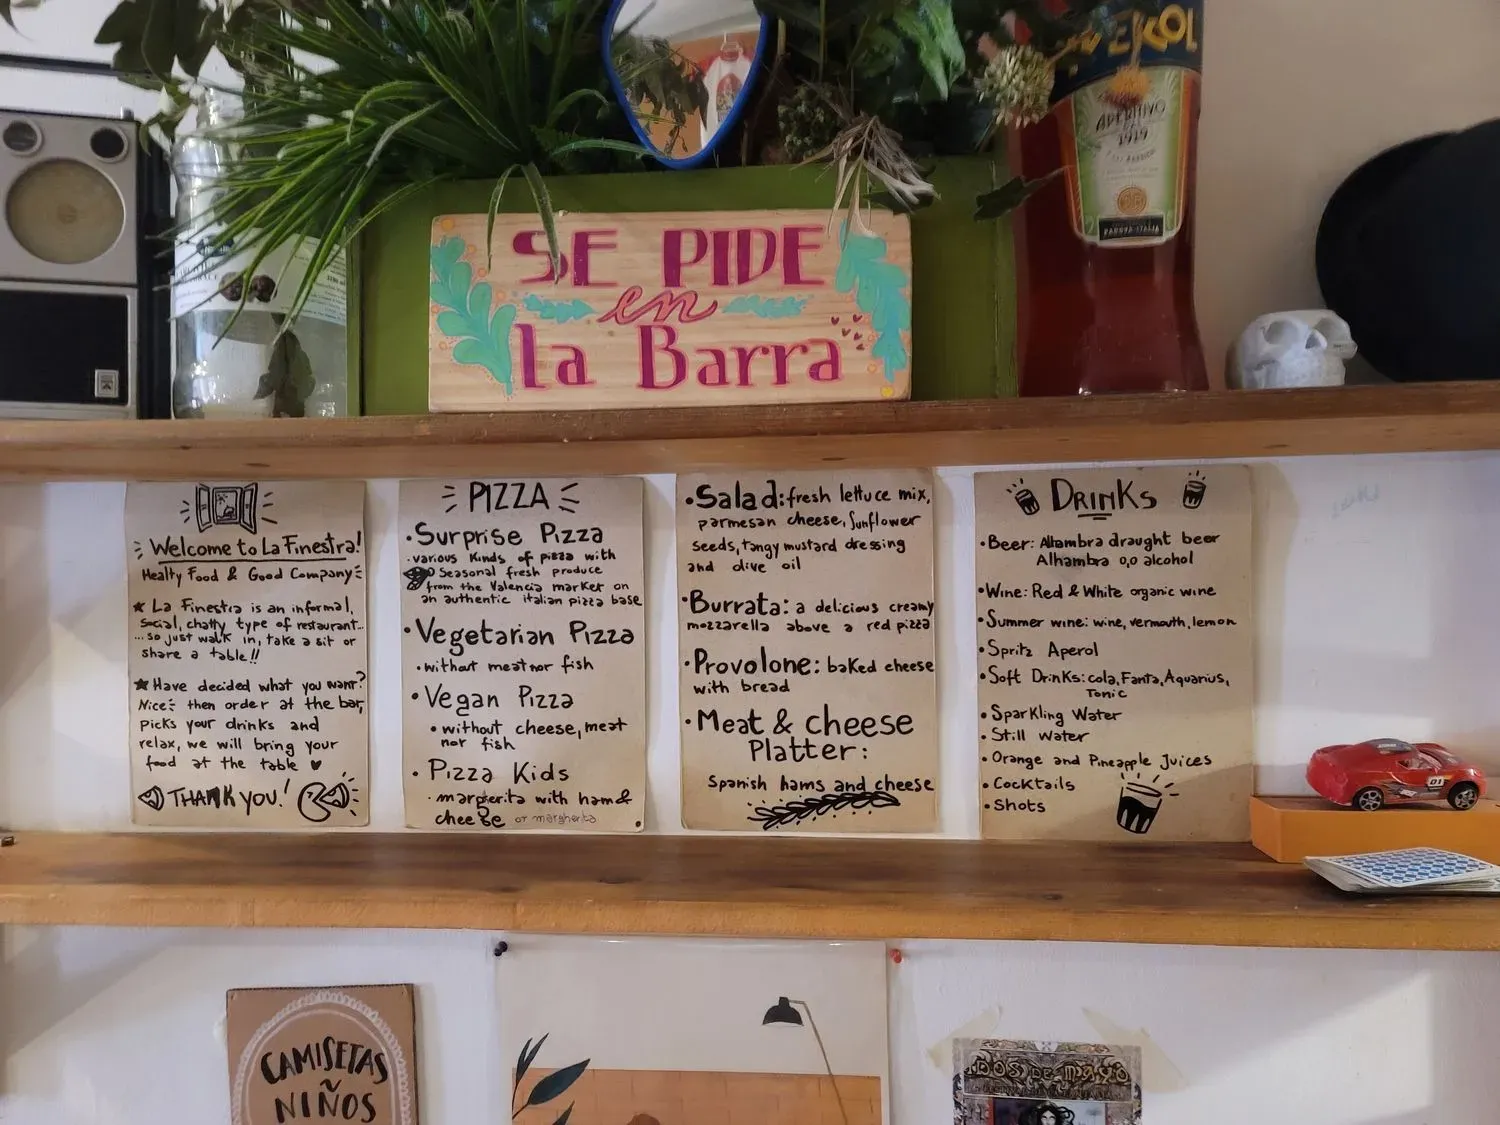 APERITIVO
1919
PADOVA-ITALIA
SE PIDE
en
la Barra
Welcome to La Finestra!
Healty Food & Good Company
★ La Finestra is an informal,
social, chatty type of restaurant...
...so just walk in, take a sit or
share a table!!
★ Have decided what you want?
Nice: then order at the bar,
picks your drinks and
relax, we will bring your
food at the table ♥
THANK YOU!
PIZZA
• Surprise Pizza
• various kinds of pizza with
seasonal fresh produce
from the Valencia market on
an authentic italian pizza base
• Vegetarian Pizza
• without meat nor fish
• Vegan Pizza
• without cheese, meat
nor fish
• Pizza Kids
• margherita with ham &
cheese or margherita
• Salad: fresh lettuce mix,
parmesan cheese, sunflower
seeds, tangy mustard dressing
and olive oil
• Burrata: a delicious creamy
mozzarella above a red pizza
• Provolone: baked cheese
with bread
• Meat & cheese
Platter:
Spanish hams and cheese
DRINKS
• Beer: Alhambra draught beer
Alhambra 0,0 alcohol
• Wine: Red & White organic wine
• Summer wine: wine, vermouth, lemon
• Spritz Aperol
• Soft Drinks: cola, Fanta, Aquarius,
Tonic
• Sparkling Water
• Still water
• Orange and Pineapple Juices
• Cocktails
• Shots
01
CAMISETAS
NIÑOS
DOS DE MAYO